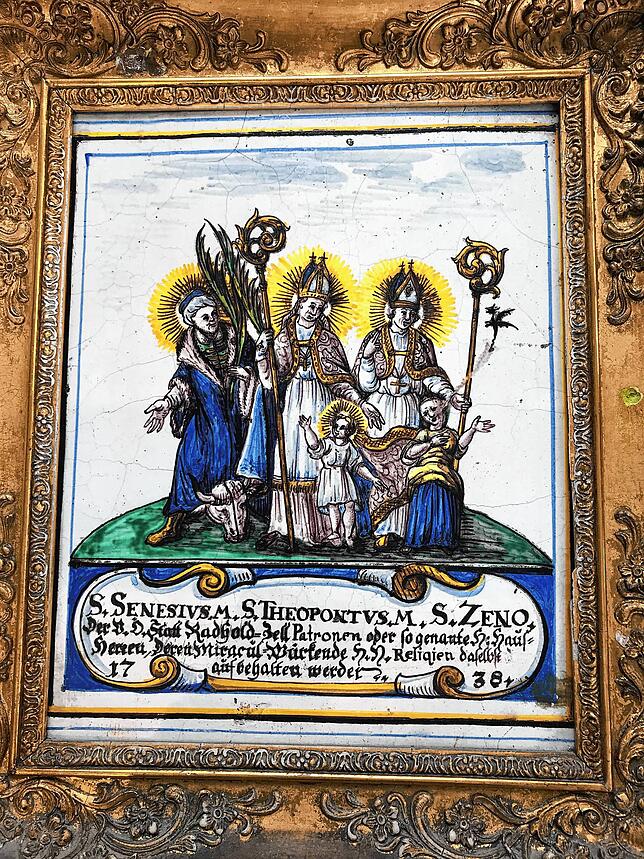 S. SENESIVS. M. S. THEOPONTVS. M. S. ZENO.
Der V. Ö. Statt Radhold-Zell Patronen oder so genante H: Haus=
Herren, Deren Miracul-Würckende H. H. Reliqien daselbst
17 auf behalten werden 38.